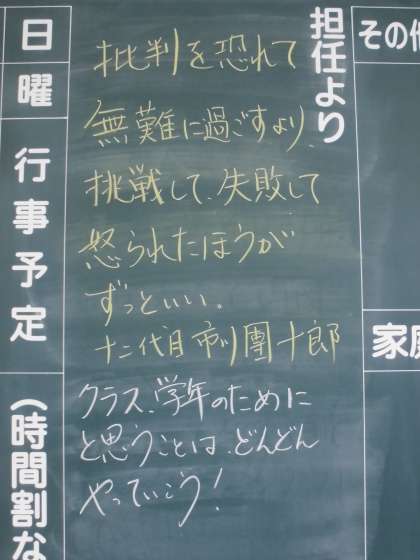 日
曜
行事予定
(時間割な
批判を恐れて
無難に過ごすより、
挑戦して、失敗して
怒られたほうが
ずっといい。
十二代目市川團十郎
クラス、学年のために
と思うことは、どんどん
やっていこう!
担任より
その他
家庭